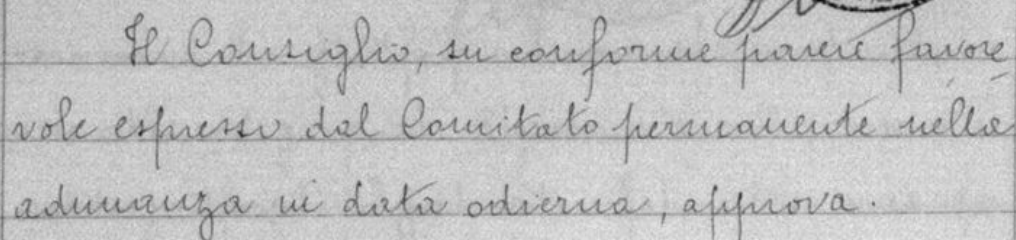 Il Consiglio, su conforme parere favore
vole espresso dal Comitato permanente nella
adunanza in data odierna, approva.